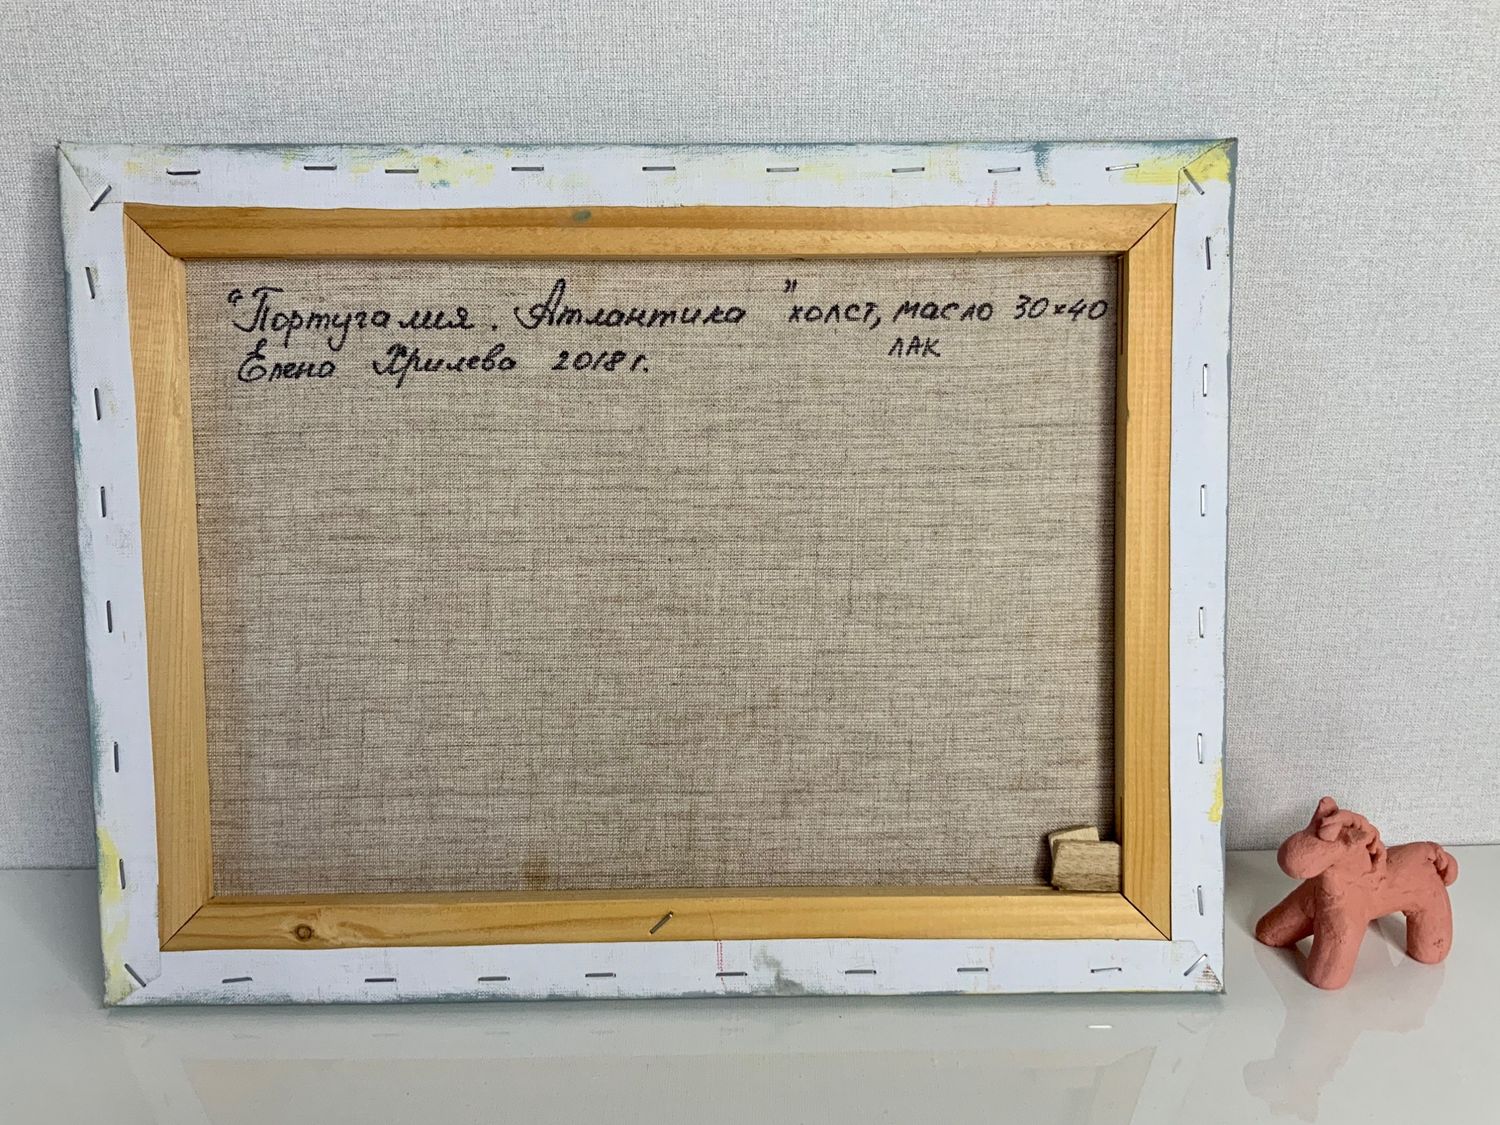 "Португалия. Атлантика" холст, масло 30×40
лак
Елена Хрилева 2018 г.